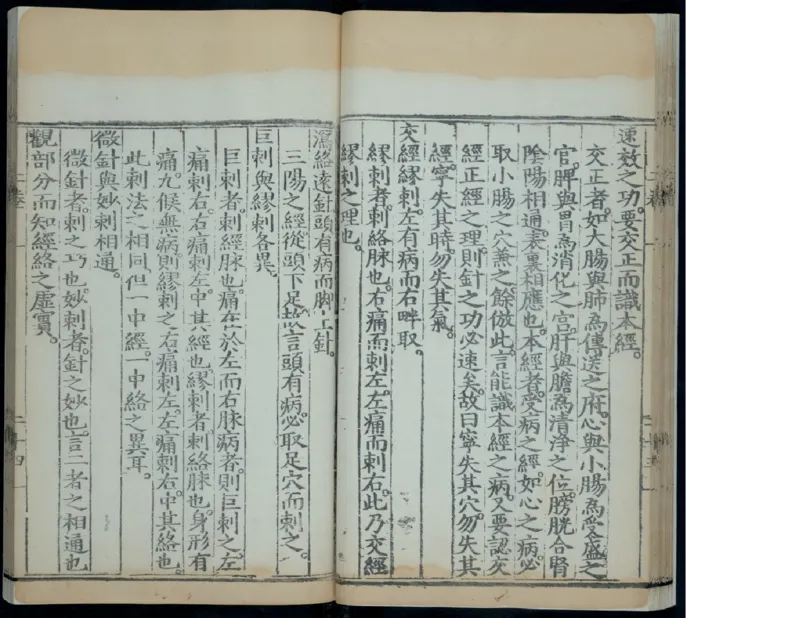 速效之功。要交正而識本經。
交正者。如大腸與肺為傳送之府。心與小腸為受盛之
官。脾與胃為消化之宮。肝與膽為清淨之位。膀胱合腎
陰陽相通。表裏相應也。本經者。受病之經。如心之病。必
取小腸之穴兼之。餘倣此。言能識本經之病。又要認交
經正經之理。則針之功必速矣。故曰寧失其穴。勿失其
經。寧失其時。勿失其氣。
交經繆刺。左有病而右畔取。
繆刺者刺絡脉也。右痛而刺左。左痛而刺右。此乃交經
繆刺之理也。
瀉絡遠針。頭有病而脚上針。
三陽之經從頭下足。故言頭有病。必取足穴而刺之。
巨刺與繆刺各異。
巨刺者。刺經脉也。痛在於左而右脉病者。則巨刺之。左
痛刺右。右痛刺左。中其經也。繆刺者。刺絡脉也。身形有
痛。九候無病。則繆刺之。右痛刺左。左痛刺右。中其絡也
此刺法之相同。但一中經。一中絡之異耳。
微針與妙刺相通。
微針者。刺之巧也。妙刺者。針之妙也。言二者之相通也
觀部分而知經絡之虛實。
二卷
二十四